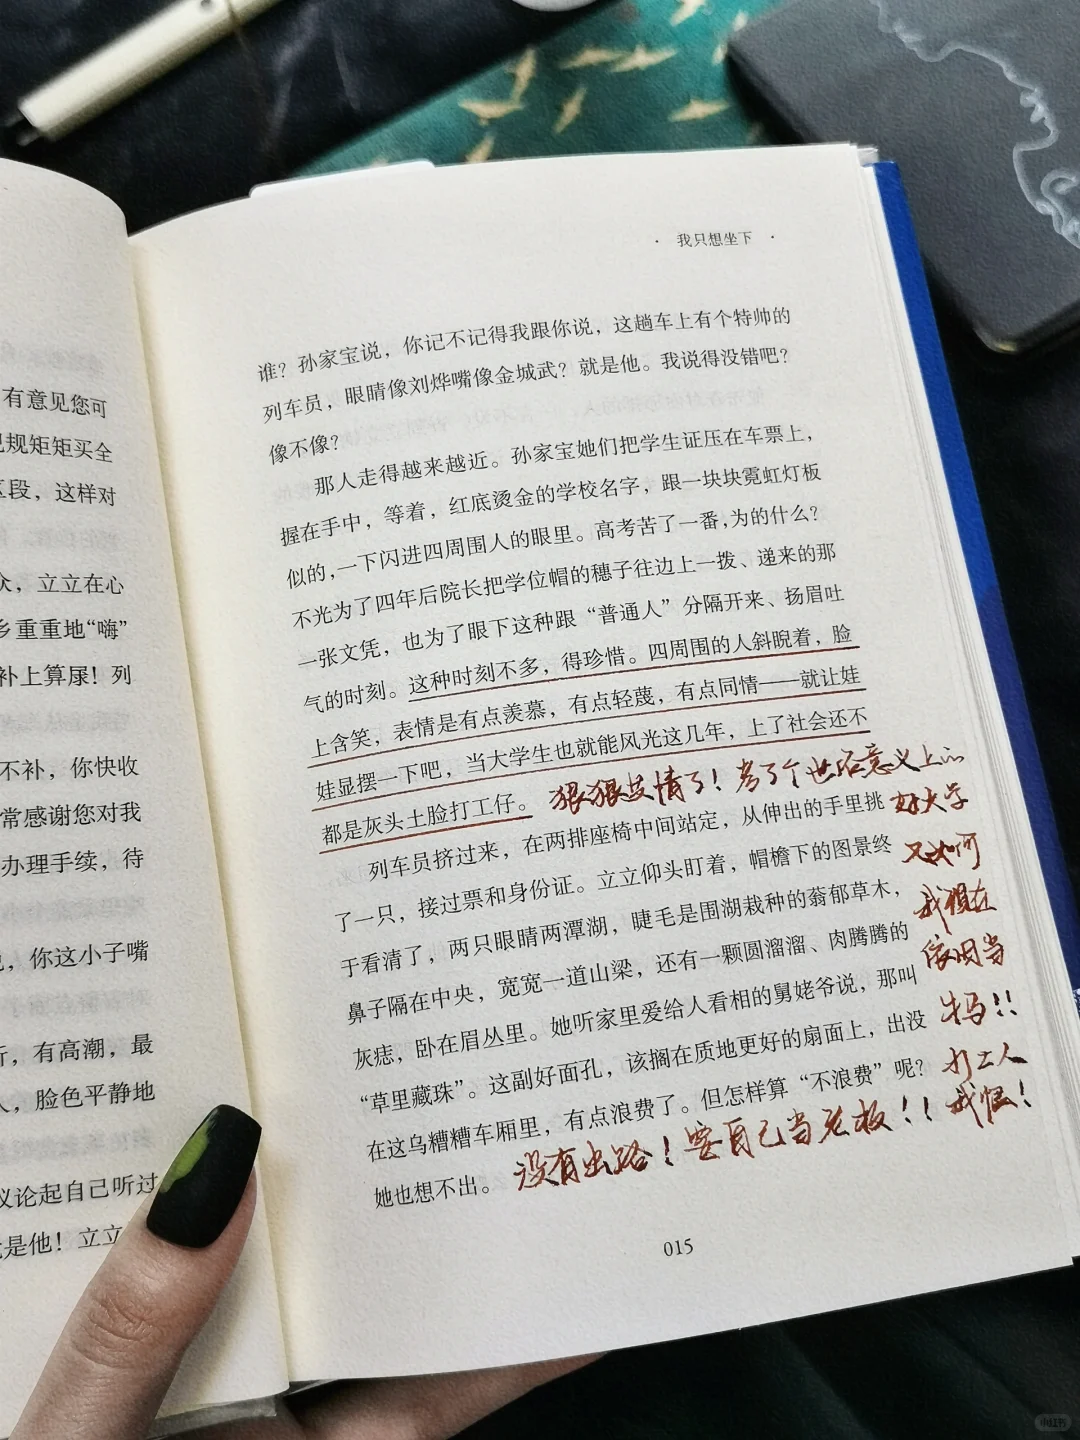 有意见您可
规规矩矩买全
区段，这样对
众，立立在心
乡重重地“嗨”
补上算屎！列
不补，你快收
常感谢您对我
办理手续，待
，你这小子嘴
，有高潮，最
人，脸色平静地
议论起自己听过
是他！立立
· 我只想坐下 ·
谁？孙家宝说，你记不记得我跟你说，这趟车上有个特帅的
列车员，眼睛像刘烨嘴像金城武？就是他。我说得没错吧？
像不像？
那人走得越来越近。孙家宝她们把学生证压在车票上，
握在手中，等着，红底烫金的学校名字，跟一块块霓虹灯板
似的，一下闪进四周围人的眼里。高考苦了一番，为的什么？
不光为了四年后院长把学位帽的穗子往边上一拨、递来的那
一张文凭，也为了眼下这种跟“普通人”分隔开来、扬眉吐
气的时刻。这种时刻不多，得珍惜。四周围的人斜睨着，脸
上含笑，表情是有点羡慕，有点轻蔑，有点同情——就让娃
娃显摆一下吧，当大学生也就能风光这几年，上了社会还不
都是灰头土脸打工仔。
狠狠共情了！考了个世俗意义上的
好大学
又如何
我现在
依旧当
牛马！！
打工人
没有出路！要自己当老板！！
我恨！
列车员挤过来，在两排座椅中间站定，从伸出的手里挑
了一只，接过票和身份证。立立仰头盯着，帽檐下的图景终
于看清了，两只眼睛两潭湖，睫毛是围湖栽种的蓊郁草木，
鼻子隔在中央，宽宽一道山梁，还有一颗圆溜溜、肉腾腾的
灰痣，卧在眉丛里。她听家里爱给人看相的舅姥爷说，那叫
“草里藏珠”。这副好面孔，该搁在质地更好的扇面上，出没
在这乌糟糟车厢里，有点浪费了。但怎样算“不浪费”呢？
她也想不出。
015
小红书